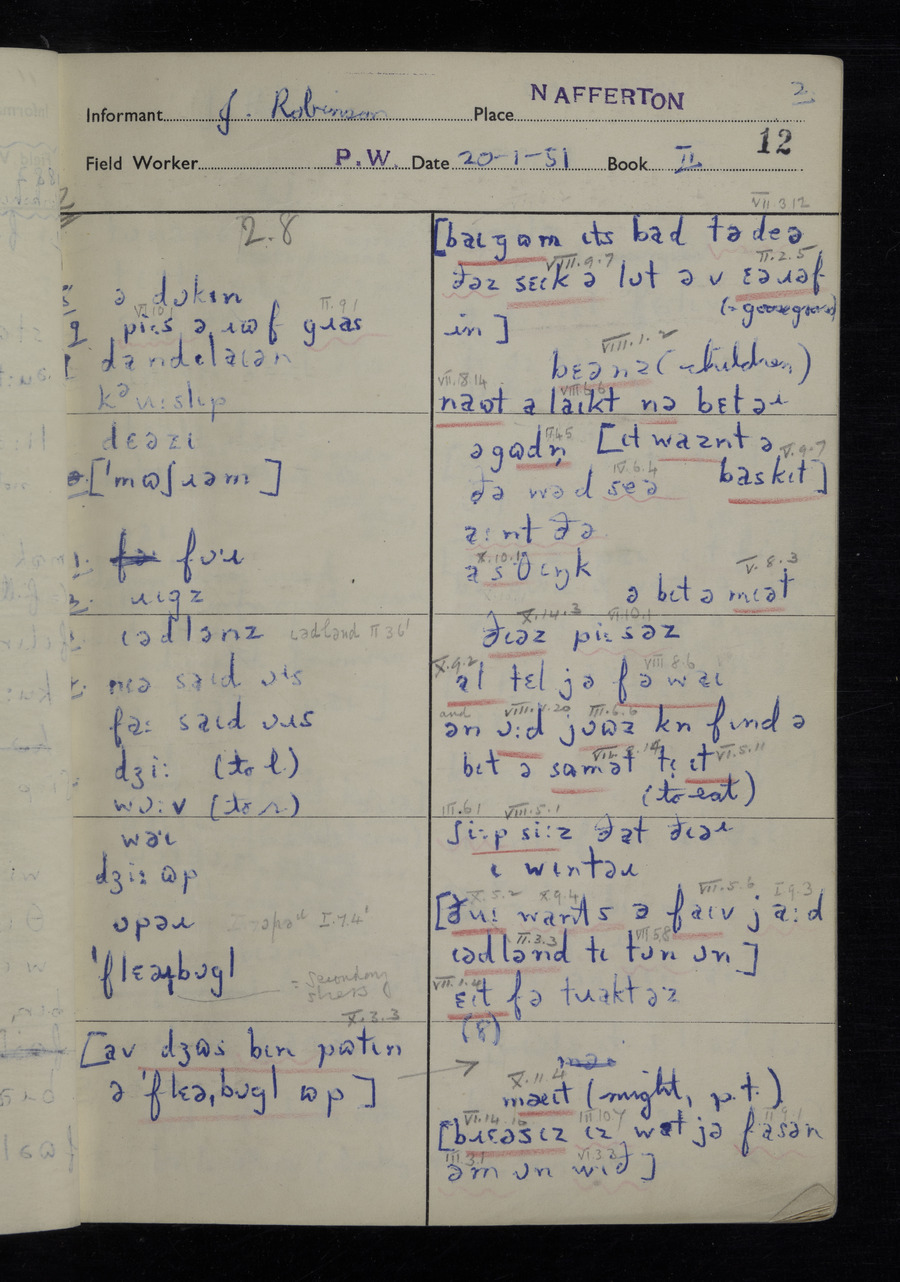 NAFFERTON
2
Informant J. Robinson Place
12
Field Worker P.W. Date 20-1-51 Book II
VII.3.12
2.8
ə dʊkɪn
VI.10.1 II.9.1
pi:s ə ɹɷf gɹas
dandɛlaɪən
kəu:slɪp
dɛəzɪ
['mɷʃɹəm]
1. fʊ'ɹ
ɹɪgz
ɪədlənz ɪədland II 36'
nɪə saɪd
fa: saɪd
dʒi: (to l.)
wʊ:v (to r.)
waɪ
dʒi: ɷp
ʊpəɹ I.7.4'
'flɛəˌbʊgl
= secondary stress
X.3.3
[av dʒɷs bɪn pɷtɪn
ə 'flɛəˌbʊgl ɷp]
[baɪgɷm ɪts bad tə dɛə
VIII.9.7 II.2.5
ðəz sɛɪk ə lɒt ə v ɛəɹəf
(= goosegrass)
ɪn]
VIII.1.2
bɛənz (children)
VII.8.14 VIII.6.6
naɷt ə laɪkt nə bɛtəɹ
əgɷdn̩ [ɪt waznt ə
V.9.7
IV.6.4 baskɪt]
ðə wəd sɛə
a:nt ðə
X.10.1 V.8.3
a s θɪŋk
ə bɪt ə mɪət
X.14.3 VI.10.1
ðɪəz pi:səz
X.9.2 VIII.8.6
al tɛl jə fə waɪ
and III.6.6
ən ʊ:d jɷɷz kn fɪnd ə
VI.5.11
bɪt ə sɷmət tɪ ɪt
(to eat)
III.6.1 VIII.5.1
ʃi:p si:z ðat ðɪəɹ
ɪ wɪntəɹ
X.5.2 X.9.4 VII.5.6 I.9.3
[ðu: wants ə faɪv ja:d
II.3.3 VII.5.8
ɪədlənd tɪ tʊn ʊn]
VII.1.4
ɛɪt fə tɹaktəz
(8)
X.11.4
mæɪt (might, p.t.)
III.10.7 II.9.1
[bɹɛəsɪz ɪz wɒt jə fasən
III.3.1 VI.3.2
əm ʊn wɪð]